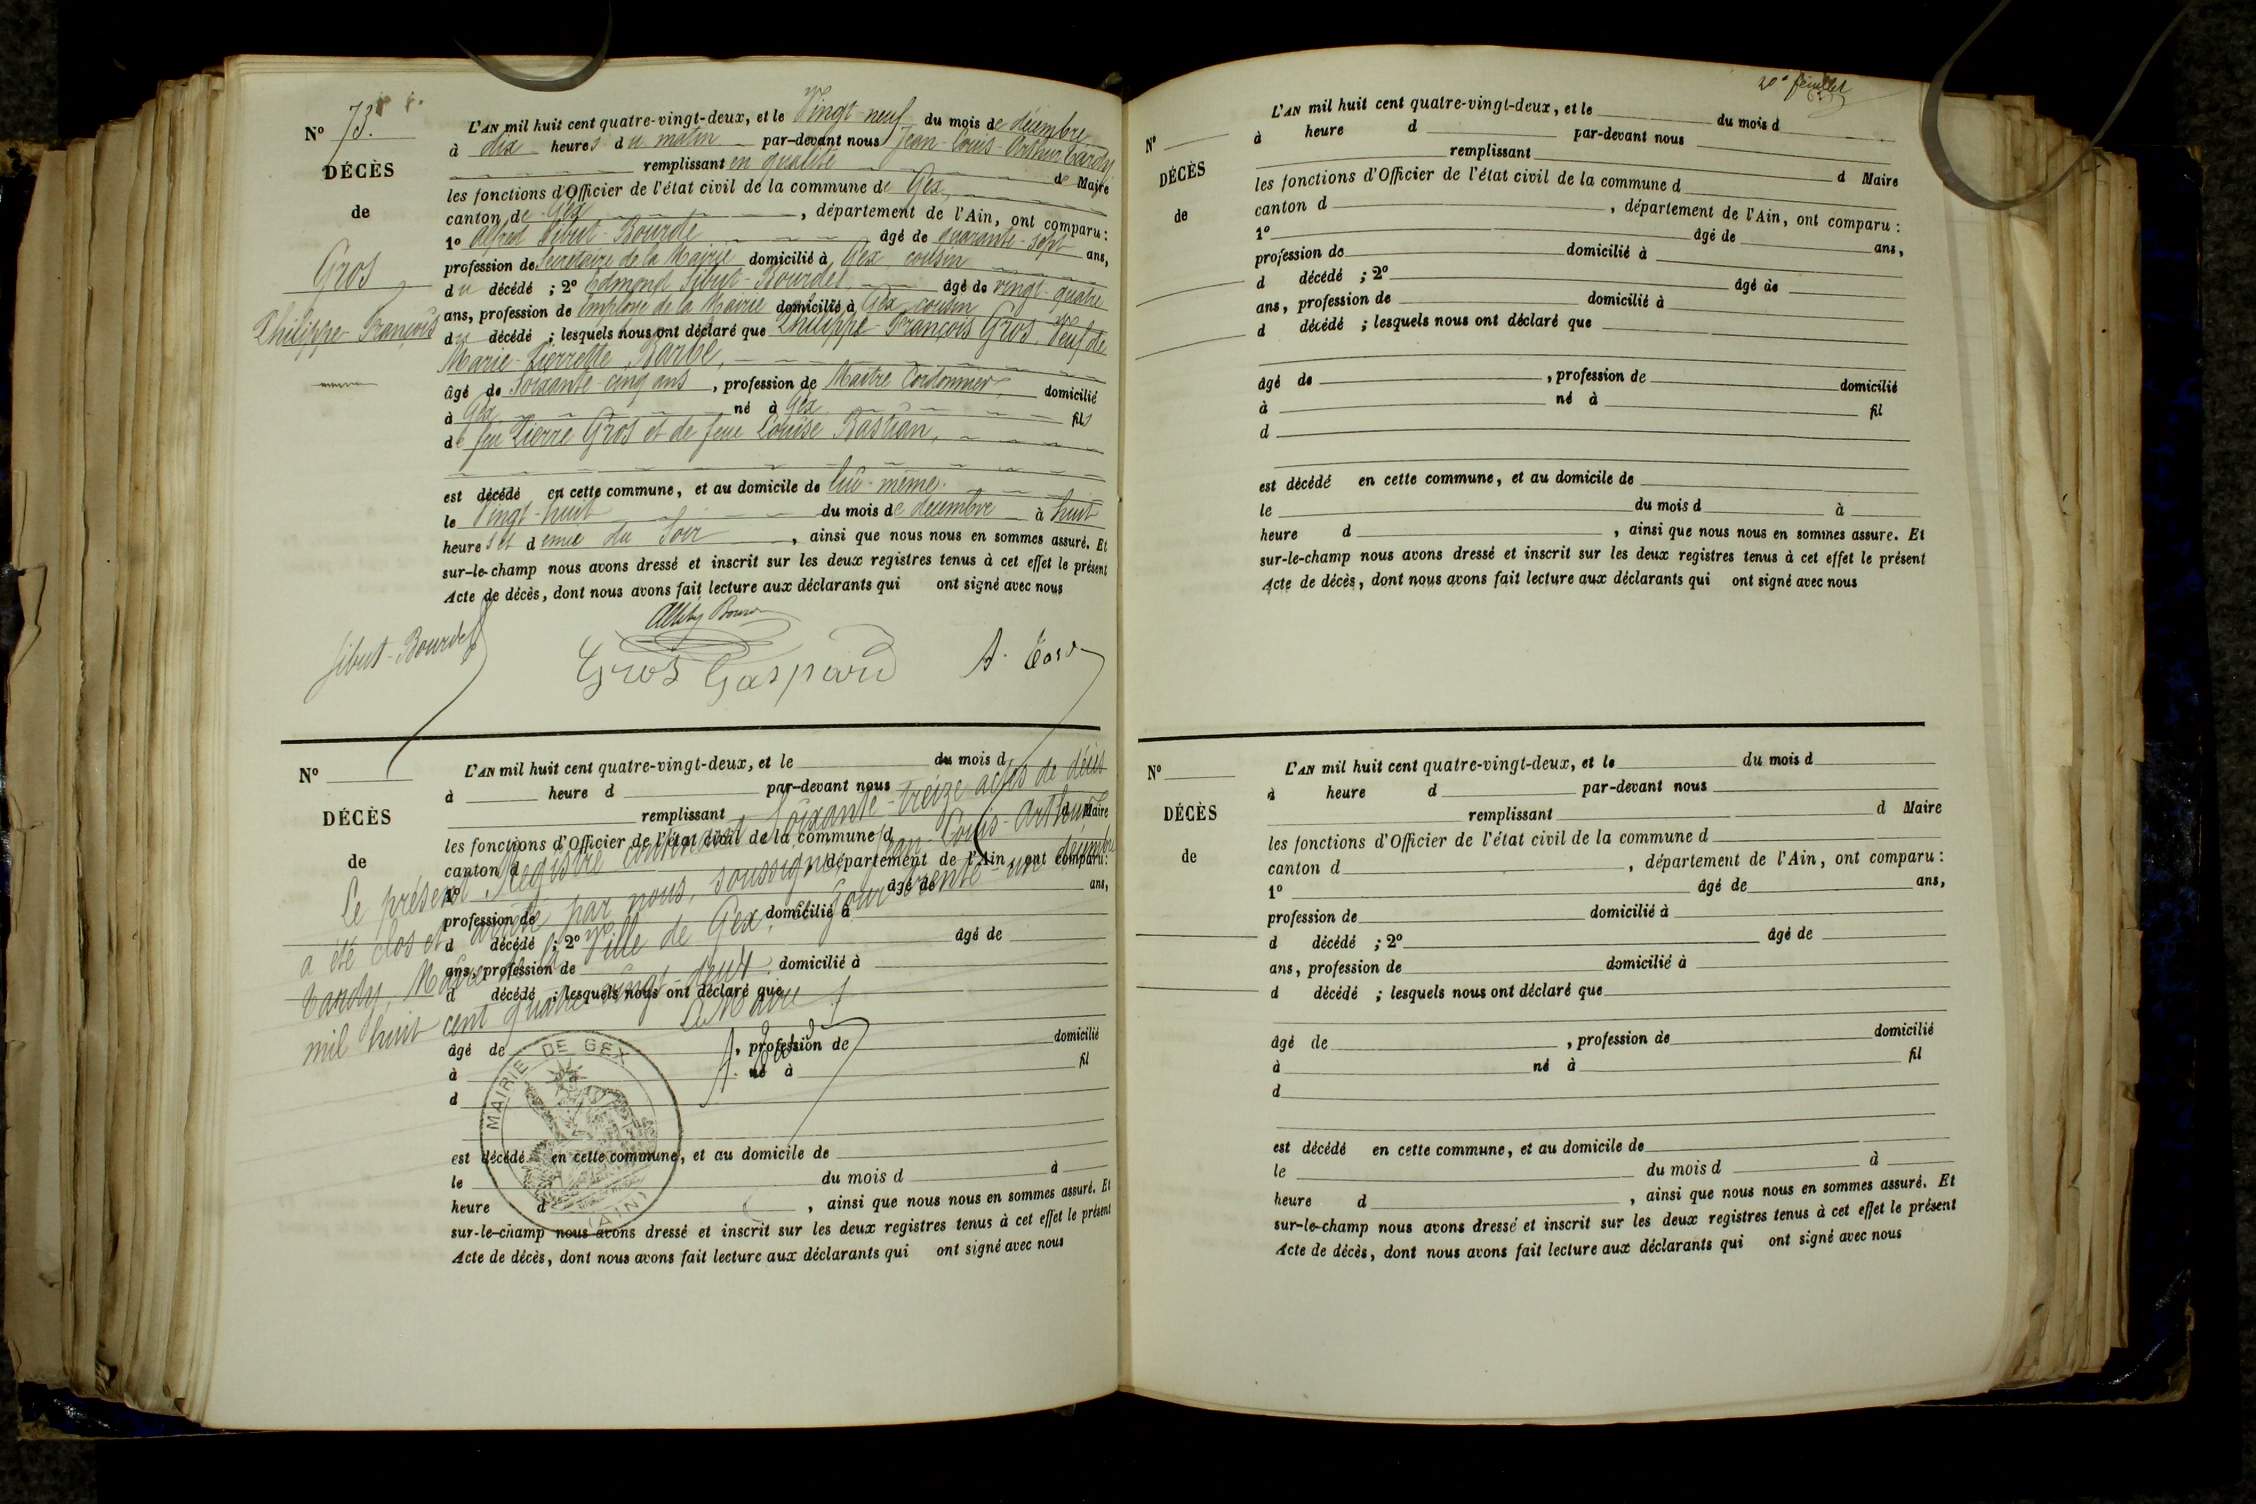 Nº 73.
DÉCÈS
de
Gros
Philippe-François
L'AN mil huit cent quatre-vingt-deux, et le Vingt-neuf du mois de décembre
à dix heures du matin par-devant nous Jean-Louis-Arthur Tardy
remplissant en qualité de Maire
les fonctions d'Officier de l'état civil de la commune de Gex,
canton de Gex, département de l'Ain, ont comparu :
1º Alfred Sibut-Bourde âgé de quarante-sept ans,
profession de Secrétaire de la Mairie domicilié à Gex cousin
du décédé ; 2º Edmond Sibut-Bourdet âgé de vingt-quatre
ans, profession de Employé de la Mairie domicilié à Gex cousin
du décédé ; lesquels nous ont déclaré que Philippe-François Gros, Veuf de
Marie-Pierrette Barbe,
âgé de Soixante-cinq ans, profession de Maître Cordonnier, domicilié
à Gex né à Gex fils
de feu Pierre Gros et de feue Louise Bastian,
est décédé en cette commune, et au domicile de lui-même.
le Vingt-huit du mois de décembre à huit
heures et demie du Soir, ainsi que nous nous en sommes assuré. Et
sur-le-champ nous avons dressé et inscrit sur les deux registres tenus à cet effet le présent
Acte de décès, dont nous avons fait lecture aux déclarants qui ont signé avec nous
Sibut-Bourdet
Gros Gaspard
A. Tardy
Nº
DÉCÈS
de
L'AN mil huit cent quatre-vingt-deux, et le du mois d
à heure d par-devant nous
remplissant d Maire
les fonctions d'Officier de l'état civil de la commune d
canton d , département de l'Ain, ont comparu :
1º âgé de ans,
profession de domicilié à
d décédé ; 2º âgé de
ans, profession de domicilié à
d décédé ; lesquels nous ont déclaré que
âgé de , profession de domicilié
à né à fil
d
est décédé en cette commune, et au domicile de
le du mois d à
heure d , ainsi que nous nous en sommes assuré. Et
sur-le-champ nous avons dressé et inscrit sur les deux registres tenus à cet effet le présent
Acte de décès, dont nous avons fait lecture aux déclarants qui ont signé avec nous
Le présent Registre contenant Soixante-treize actes de décès
a été clos et arrêté par nous, soussigné, Jean-Louis-Arthur
Tardy, Maire de la Ville de Gex, ce jour trente-un décembre
mil huit cent quatre-vingt-deux.
Le Maire
MAIRIE DE GEX
(AIN)
20e feuillet
Nº
DÉCÈS
de
L'AN mil huit cent quatre-vingt-deux, et le du mois d
à heure d par-devant nous
remplissant d Maire
les fonctions d'Officier de l'état civil de la commune d
canton d , département de l'Ain, ont comparu :
1º âgé de ans,
profession de domicilié à
d décédé ; 2º âgé de
ans, profession de domicilié à
d décédé ; lesquels nous ont déclaré que
âgé de , profession de domicilié
à né à fil
d
est décédé en cette commune, et au domicile de
le du mois d à
heure d , ainsi que nous nous en sommes assuré. Et
sur-le-champ nous avons dressé et inscrit sur les deux registres tenus à cet effet le présent
Acte de décès, dont nous avons fait lecture aux déclarants qui ont signé avec nous
Nº
DÉCÈS
de
L'AN mil huit cent quatre-vingt-deux, et le du mois d
à heure d par-devant nous
remplissant d Maire
les fonctions d'Officier de l'état civil de la commune d
canton d , département de l'Ain, ont comparu :
1º âgé de ans,
profession de domicilié à
d décédé ; 2º âgé de
ans, profession de domicilié à
d décédé ; lesquels nous ont déclaré que
âgé de , profession de domicilié
à né à fil
d
est décédé en cette commune, et au domicile de
le du mois d à
heure d , ainsi que nous nous en sommes assuré. Et
sur-le-champ nous avons dressé et inscrit sur les deux registres tenus à cet effet le présent
Acte de décès, dont nous avons fait lecture aux déclarants qui ont signé avec nous